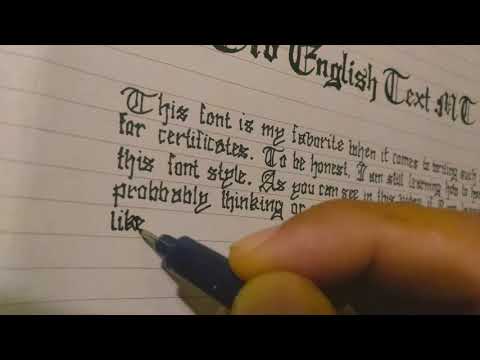 Old English Text MT
This font is my favorite when it comes to writing such
for certificates. To be honest, I am still learning how to
this font style. As you can see in this video, I
probbably thinking or
like